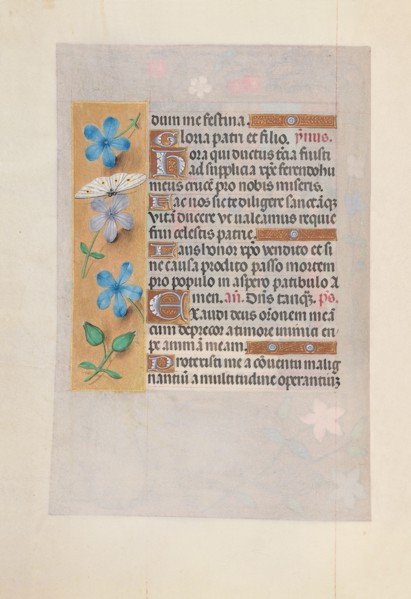 dum me festina.
Gloria patri et filio. ymus.
Hora qui ductus t̄cia fuisti
ad supplicia xp̄e ferendo hu
meus crucē pro nobis miseris.
Fac nos sic te diligere sanctāq̄
vitā ducere vt valeamus requie
frui celestis patrie.
Laus honor xp̄o vendito et si
ne causa prodito passo mortem
pro populo in aspero patibulo a
men. añ. Dn̄s tanq̄. ps.
Exaudi deus or̄onem meā
cum deprecor a timore inimici eri
pe animā meam.
Protexisti me a cōventu malig
nantiū a multitudine operantiuȝ